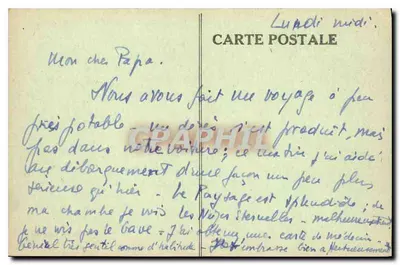 Lundi midi.
CARTE POSTALE
Mon cher Papa.
Nous avons fait un voyage à peu
près potable un décès s'est produit, mais
pas dans notre voiture; ce matin j'ai aidé
au débarquement d'une façon un peu plus
sérieuse qu'hier - Le Paysage est splendide; de
ma chambre je vois les Neiges éternelles - malheureusement
je ne vois pas le Gave - J'ai obtenu une carte de médecin -
très gentil comme d'habitude - Je t'embrasse bien affectueusement